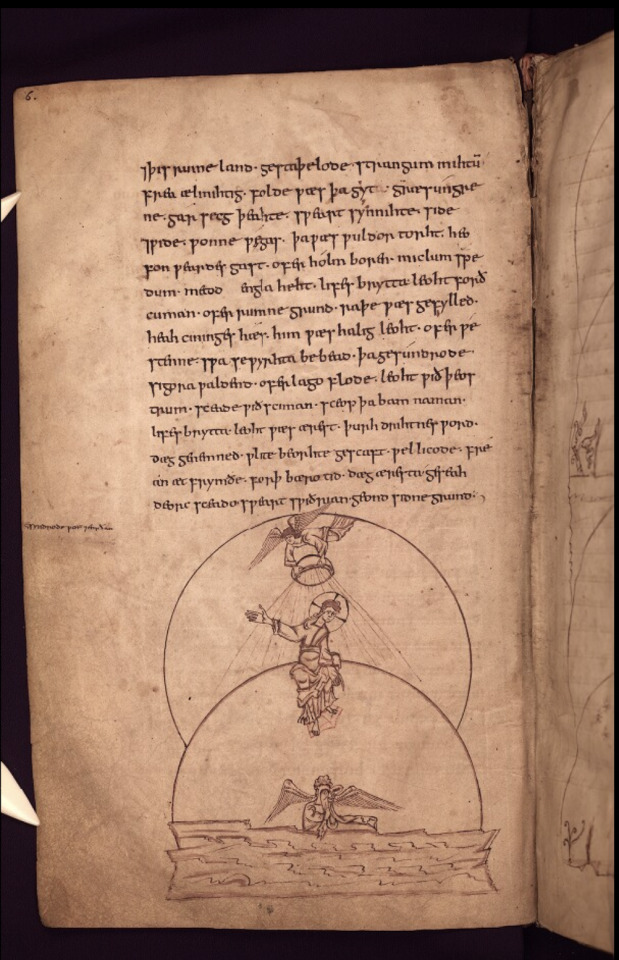 6.
⁊ þis rume land· gestaþelode· strangum mihtū
frea ælmihtig· folde wæs þa gyt græs ungre
ne· gar secg þeahte· sweart synnihte· side
⁊ wide· wonne wægas· þa wæs wuldor torht· heo
fon weardes gast· ofer holm boren· miclum spe
dum· metod engla heht· lifes brytta leoht forð
cuman· ofer rumne grund· raþe wæs gefylled·
heah cininges hæs· him wæs halig leoht· ofer we
stenne· swa se wyrhta bebead· þa gesundrode·
sigora waldend· ofer lago flode· leoht wið þeos
trum· sceade wið sciman· sceop þa bam naman·
lifes brytta· leoht wæs ærest· þurh drihtnes word·
dæg genemned· wlite beorhte gesceaft· wel licode· fre
an æt frymðe· forþ bæro tid· dæg æresta· geseah
deorc sceado sweart swiðrian geond sidne grund·